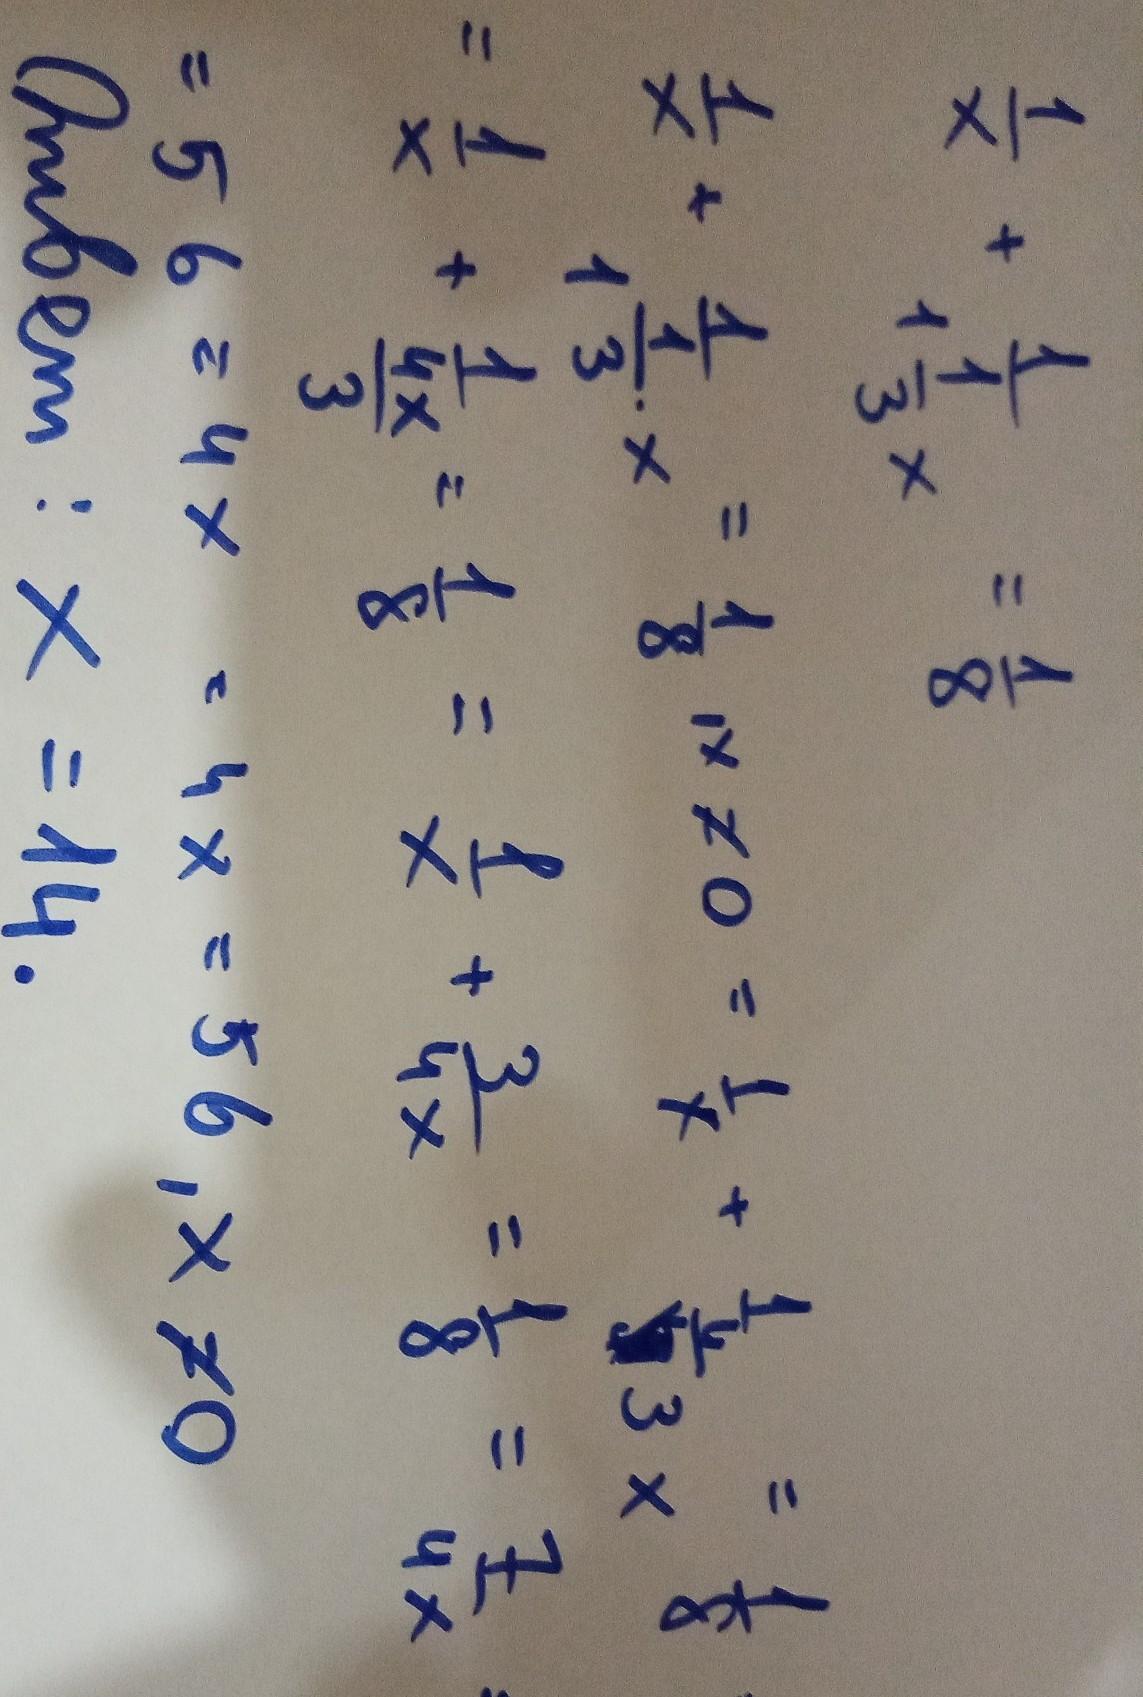 1/x + 1/(1 1/3 x) = 1/8
1/x + 1/(1 1/3 · x) = 1/8, x ≠ 0 = 1/x + 1/(4/3 x) = 1/8
= 1/x + 1/(4x/3) = 1/8 = 1/x + 3/4x = 1/8 = 7/4x =
= 56 = 4x = 4x = 56, x ≠ 0
Ответ: x = 14.